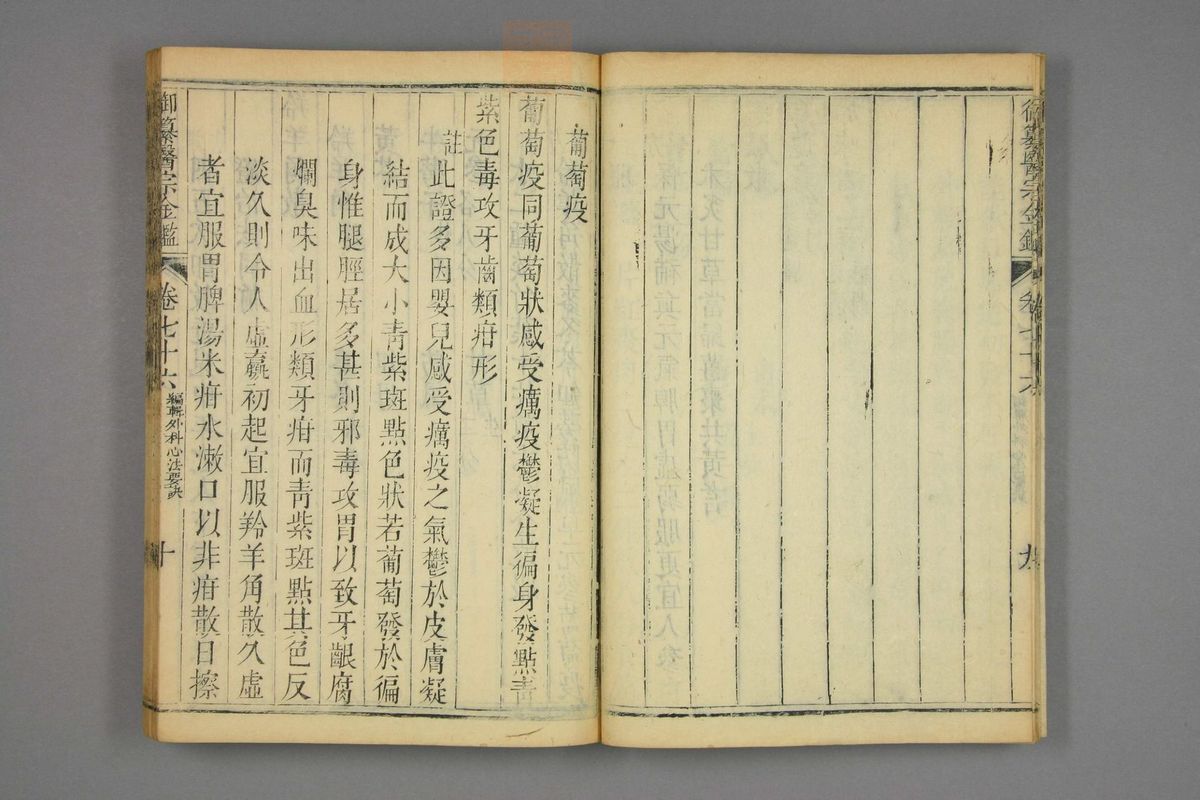 御纂醫宗金鑑
卷七十六
九
葡萄疫
葡萄疫同葡萄狀感受癘疫鬱凝生徧身發點青
紫色毒攻牙齒類疳形
註
此證多因嬰兒感受癘疫之氣鬱於皮膚凝
結而成大小青紫斑點色狀若葡萄發於徧
身惟腿脛居多甚則邪毒攻胃以致牙齦腐
爛臭味出血形類牙疳而青紫斑點其色反
淡久則令人虛羸初起宜服羚羊角散久虛
者宜服胃脾湯米疳水漱口以非疳散日擦
御纂醫宗金鑑
卷七十六
編輯外科心法要訣
十